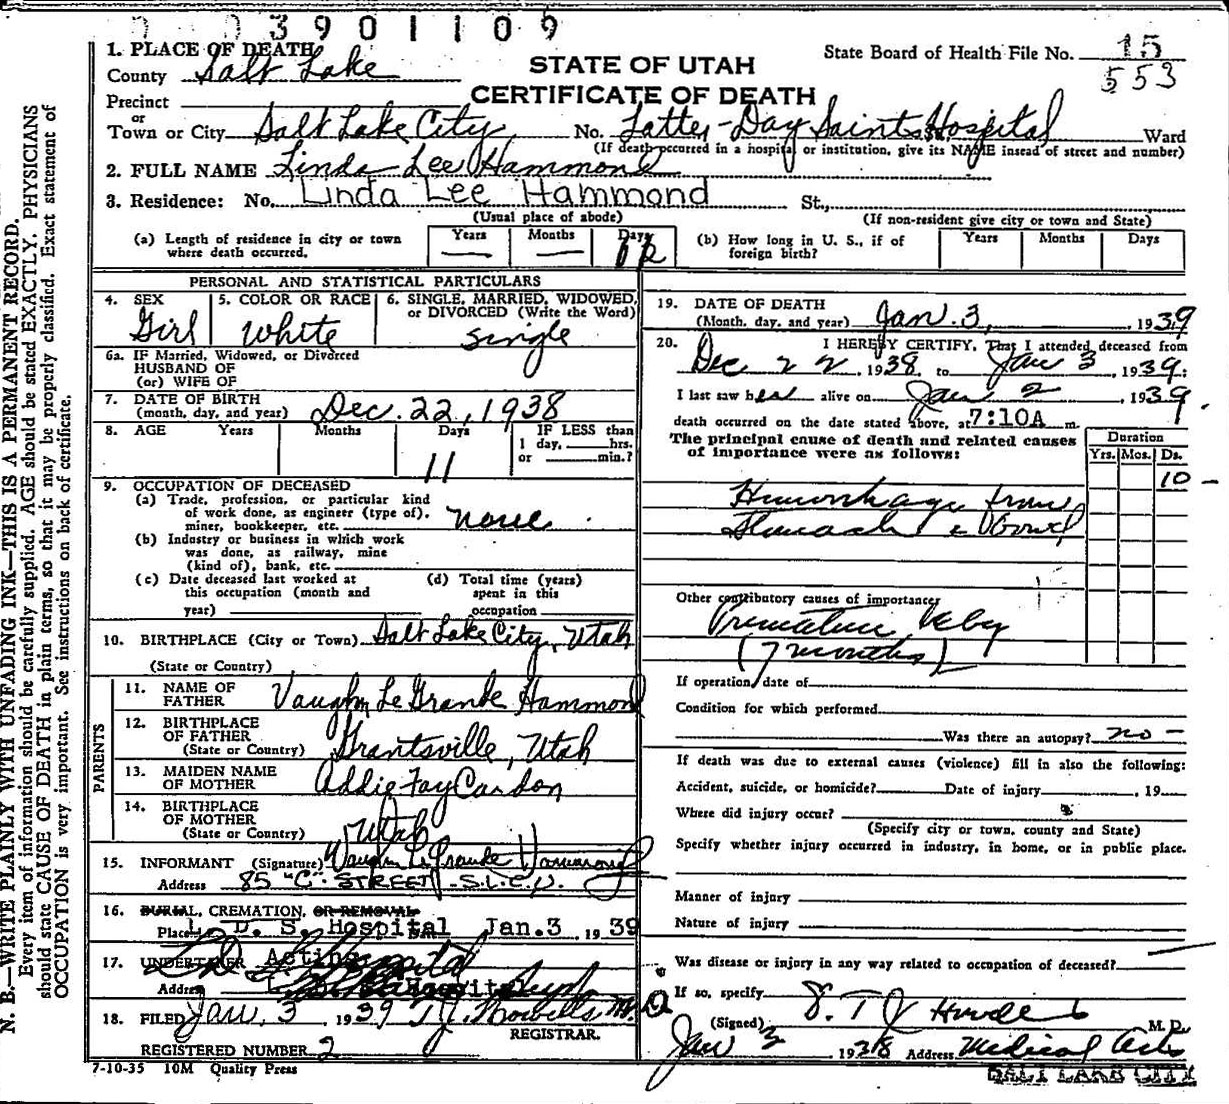 3901109
1. PLACE OF DEATH
County Salt Lake
STATE OF UTAH
CERTIFICATE OF DEATH
State Board of Health File No. 15
553
Precinct
or
Town or City Salt Lake City, No. Latter-Day Saints Hospital Ward
(If death occurred in a hospital or institution, give its NAME insead of street and number)
2. FULL NAME Linda Lee Hammond
3. Residence: No. Linda Lee Hammond St.,
(Usual place of abode) (If non-resident give city or town and State)
(a) Length of residence in city or town where death occurred. Years — Months — Days
(b) How long in U. S., if of foreign birth? Years Months Days
PERSONAL AND STATISTICAL PARTICULARS
4. SEX Girl
5. COLOR OR RACE White
6. SINGLE, MARRIED, WIDOWED, or DIVORCED (Write the Word) Single
6a. IF Married, Widowed, or Divorced
HUSBAND OF
(or) WIFE OF
7. DATE OF BIRTH
(month, day, and year) Dec. 22, 1938
8. AGE Years Months Days 11
IF LESS than
1 day, hrs.
or min.?
9. OCCUPATION OF DECEASED
(a) Trade, profession, or particular kind
of work done, as engineer (type of),
miner, bookkeeper, etc. none
(b) Industry or business in which work
was done, as railway, mine
(kind of), bank, etc.
(c) Date deceased last worked at
this occupation (month and
year)
(d) Total time (years)
spent in this
occupation
10. BIRTHPLACE (City or Town) Salt Lake City, Utah
(State or Country)
PARENTS
11. NAME OF
FATHER Vaughn LeGrande Hammond
12. BIRTHPLACE
OF FATHER
(State or Country) Grantsville, Utah
13. MAIDEN NAME
OF MOTHER Addie Fay Cardon
14. BIRTHPLACE
OF MOTHER
(State or Country) Utah
15. INFORMANT (Signature) Vaughn LeGrande Hammond
Address 85 "C" STREET S.L.C.U.
16. BURIAL, CREMATION, OR REMOVAL
Place L. D. S. Hospital Jan. 3, 1939
17. UNDERTAKER Acting
Address Hospital
18. FILED Jan. 3 1939 T.J. Howells M.D.
REGISTRAR.
REGISTERED NUMBER 2
7-10-35 10M Quality Press
19. DATE OF DEATH
(Month, day, and year) Jan. 3, 1939
20. I HEREBY CERTIFY, That I attended deceased from
Dec 22, 1938, to Jan 3 1939;
I last saw her alive on Jan 2, 1939,
death occurred on the date stated above, at 7:10A m.
The principal cause of death and related causes
of importance were as follows:
Duration
Yrs. Mos. Ds.
10 -
Hemorrhage from
Stomach & Bowel
Other contributory causes of importance
Premature Baby
(7 months)
If operation, date of
Condition for which performed
Was there an autopsy? no -
If death was due to external causes (violence) fill in also the following:
Accident, suicide, or homicide? Date of injury , 19
Where did injury occur?
(Specify city or town, county and State)
Specify whether injury occurred in industry, in home, or in public place.
Manner of injury
Nature of injury
Was disease or injury in any way related to occupation of deceased?
If so, specify
(Signed) M. D.
Jan 1938 Address Medical Arts
SALT LAKE CITY
N. B.—WRITE PLAINLY WITH UNFADING INK—THIS IS A PERMANENT RECORD.
Every item of information should be carefully supplied. AGE should be stated EXACTLY. PHYSICIANS
should state CAUSE OF DEATH in plain terms, so that it may be properly classified. Exact statement of
OCCUPATION is very important. See instructions on back of certificate.